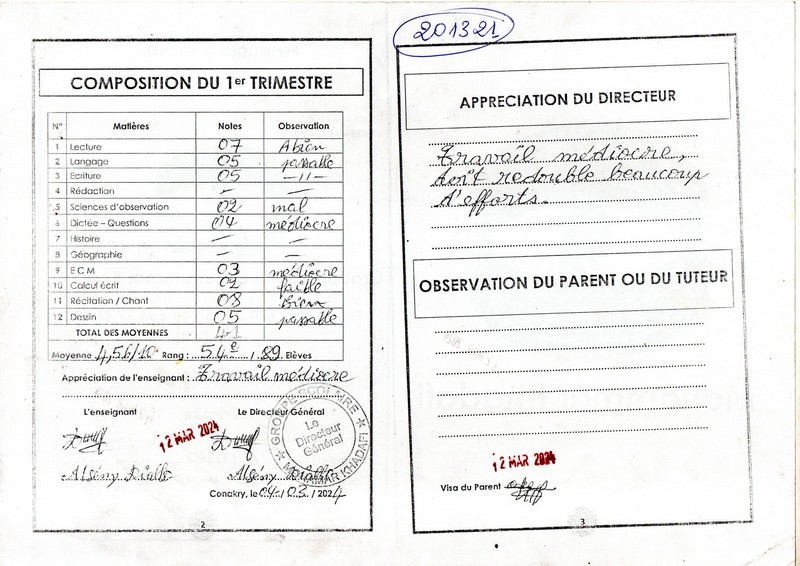 COMPOSITION DU 1er TRIMESTRE
N° Matières Notes Observation
1 Lecture 07 A bien
2 Langage 05 passable
3 Ecriture 05 —11—
4 Rédaction — —
5 Sciences d'observation 02 mal
6 Dictée – Questions 04 médiocre
7 Histoire — —
8 Géographie — —
9 E C M 03 médiocre
10 Calcul écrit 02 faible
11 Récitation / Chant 08 Bien
12 Dessin 05 passable
TOTAL DES MOYENNES 41
Moyenne 4,56/10 Rang : 54e / 89 Elèves
Appréciation de l'enseignant : Travail médiocre
L'enseignant Le Directeur Général
12 MAR 2024
GROUPE SCOLAIRE
Le
Directeur
Général
Alsény Diallo Alsény Diallo
Conakry, le 04 / 03 / 2024
2
201321
APPRECIATION DU DIRECTEUR
Travail médiocre,
doit redouble beaucoup
d'efforts.
OBSERVATION DU PARENT OU DU TUTEUR
12 MAR 2024
Visa du Parent
3